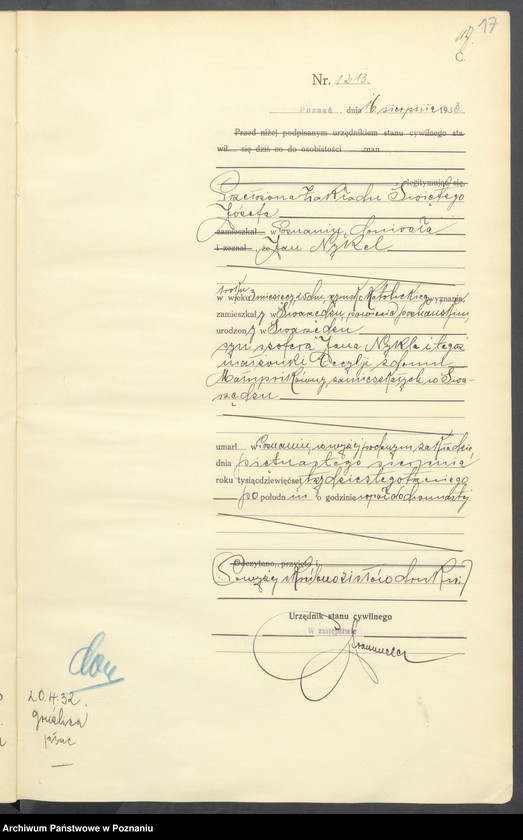 17
C.
Nr. 1213.
Poznań, dnia 16 sierpnia 1933
Przed niżej podpisanym urzędnikiem stanu cywilnego sta-
wił się dziś co do osobistości znan
legitymując się
Przełożona Zakładu Świętego
Józefa
zamieszkał w Poznaniu, doniosła
i zeznał, że Jan Nykel
w wieku 3 miesięcy, dni, rzymsk. katolickiego wyznania,
zamieszkał y w Swarzędzu, powiecie poznańskim,
urodzony w Swarzędzu
syn szofera Jana Nykla i tegoż
małżonki Cecylji z domu
zamieszkałych w Swa-
rzędzu
umarł w Poznaniu, w wyżej podanym zakładzie,
dnia piętnastego sierpnia
roku tysiącdziewięćset trzydziestego trzeciego
po południu o godzinie wpół do dwunastej
Odczytano, przyjęto i
Powyżej skreślono druku.
Urzędnik stanu cywilnego
W zastępstwie
20.4.32.
gruźlica
płuc
Archiwum Państwowe w Poznaniu